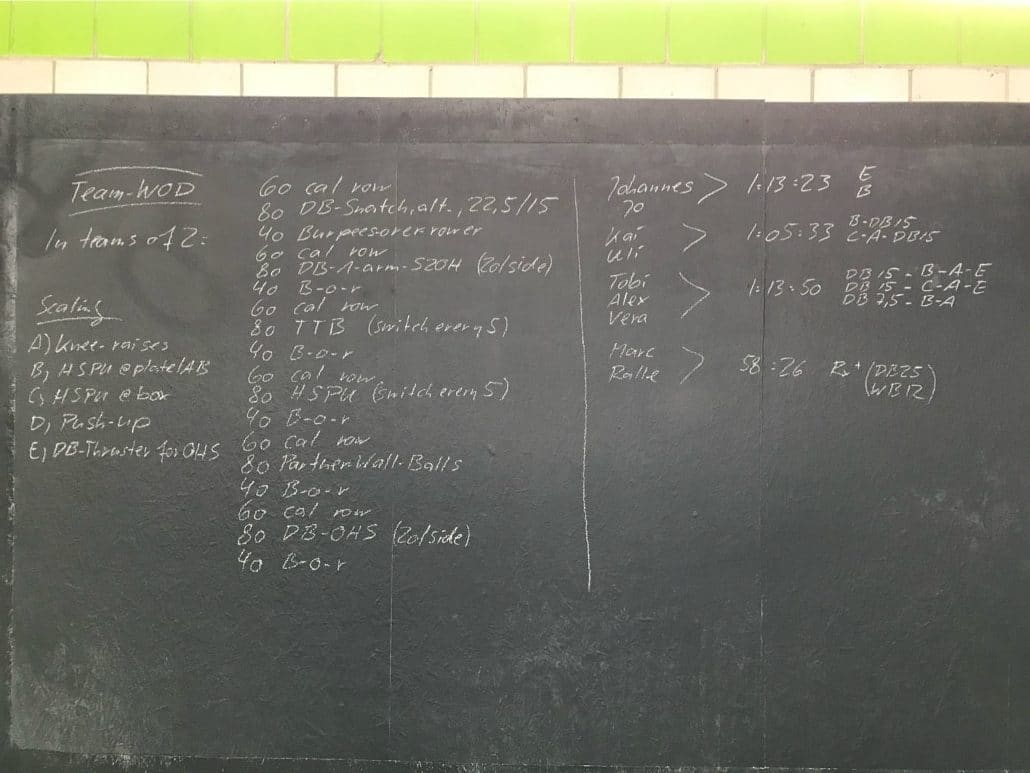 Team-WOD
In teams of 2:
Scaling
A) Knee-raises
B) HSPU @plate/AB
C) HSPU @box
D) Push-up
E) DB-Thruster for OHS
60 cal row
80 DB-Snatch, alt., 22,5/15
40 Burpees over rower
60 cal row
80 DB-1-arm-S2OH (20/side)
40 B-o-r
60 cal row
80 TTB (switch every 5)
40 B-o-r
60 cal row
80 HSPU (switch every 5)
40 B-o-r
60 cal row
80 Partner Wall-Balls
40 B-o-r
60 cal row
80 DB-OHS (20/side)
40 B-o-r
Johannes > 1:13:23 E
Jo B
Kai > 1:05:33 B-DB15
Uli C-A-DB15
Tobi DB 15 - B-A-E
Alex > 1:13:50 DB 15 - C-A-E
Vera DB 7,5 - B-A
Marc > 58:26 Rx+ (DB25
Ralle WB12)